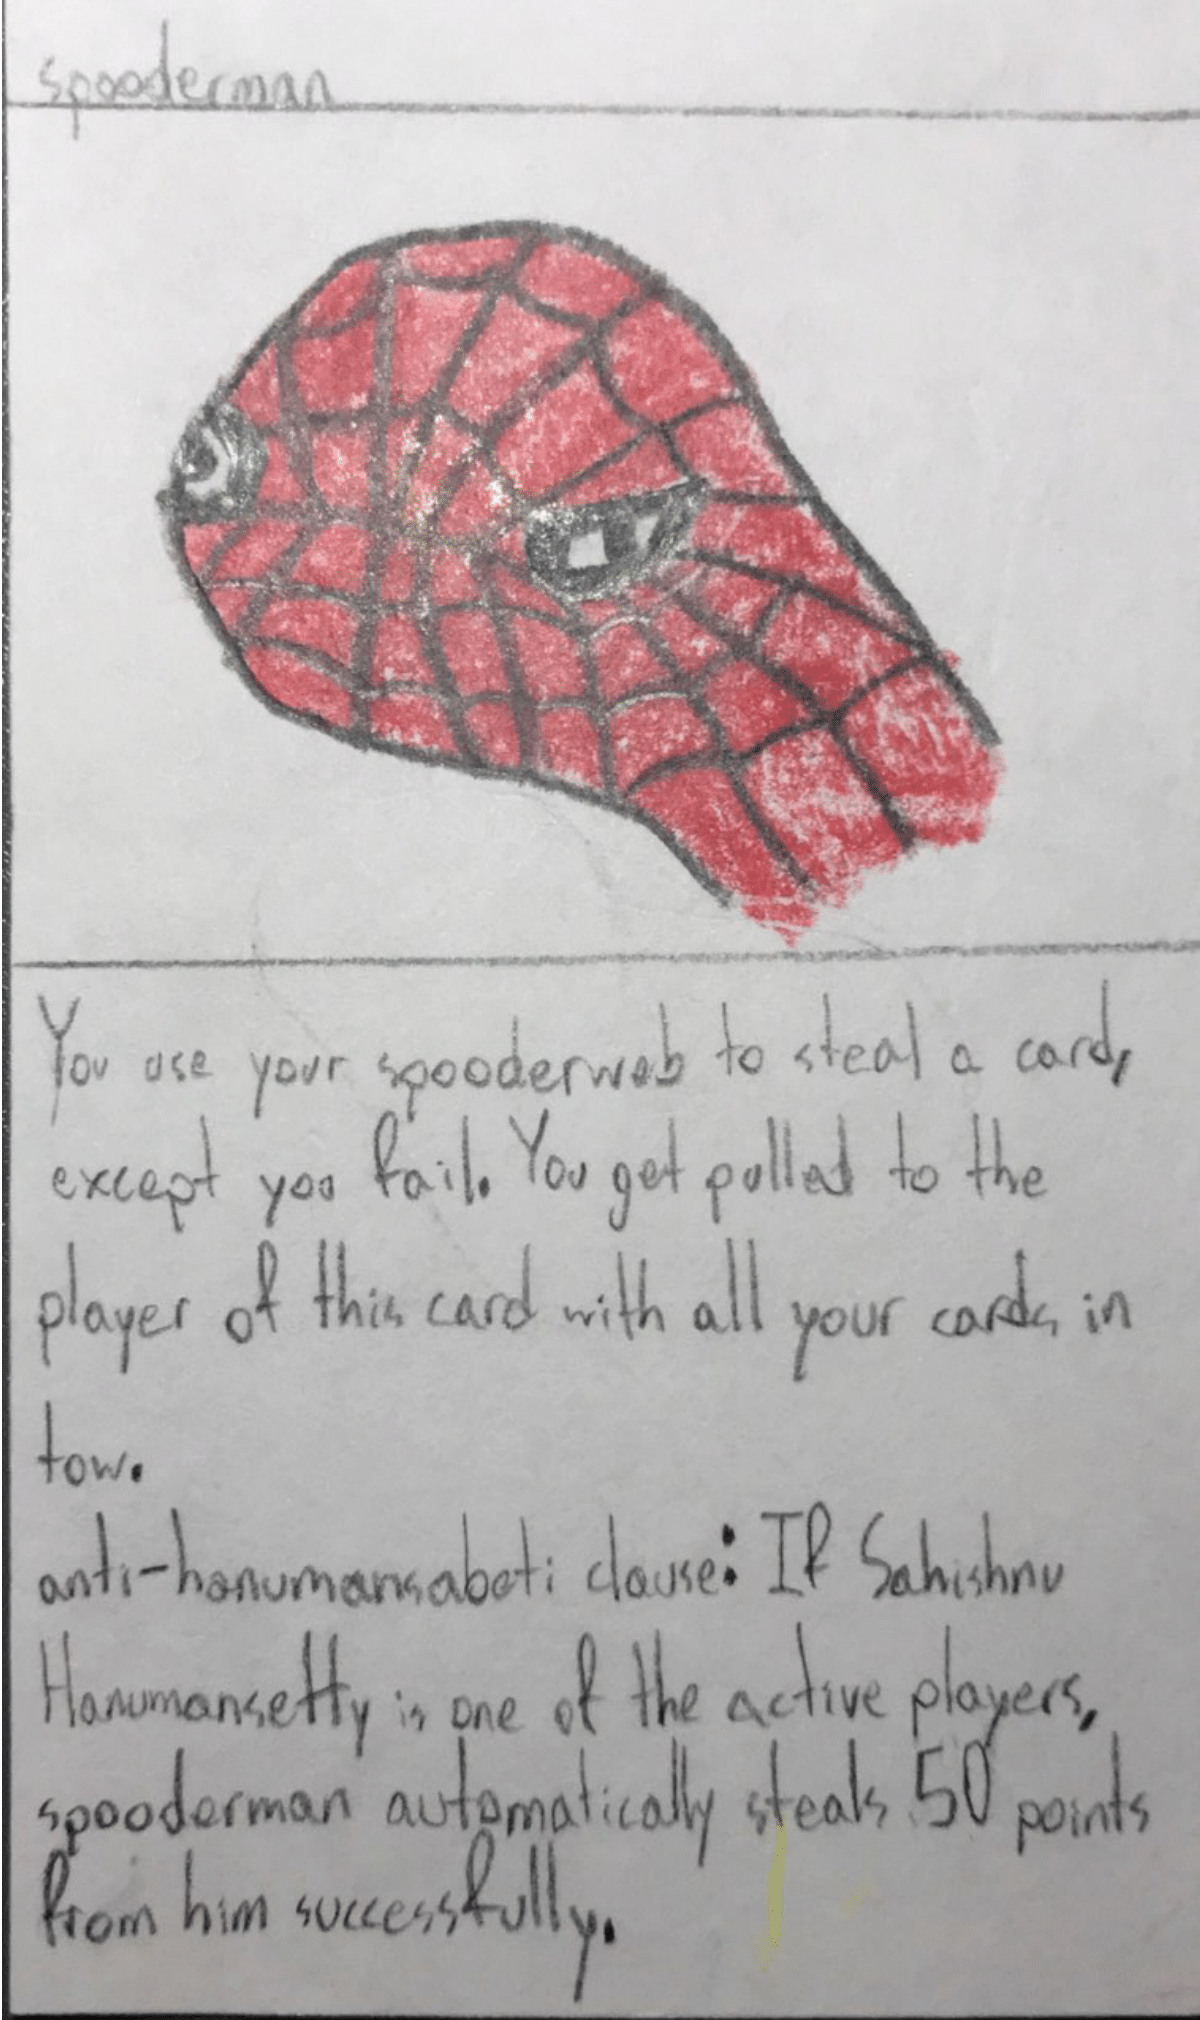 spooderman
You use your spooderweb to steal a card,
except you fail. You get pulled to the
player of this card with all your cards in
tow.
anti-hanumansabeti clause: If Sahishnu
Hanumansetty is one of the active players,
spooderman automatically steals 50 points
from him successfully.